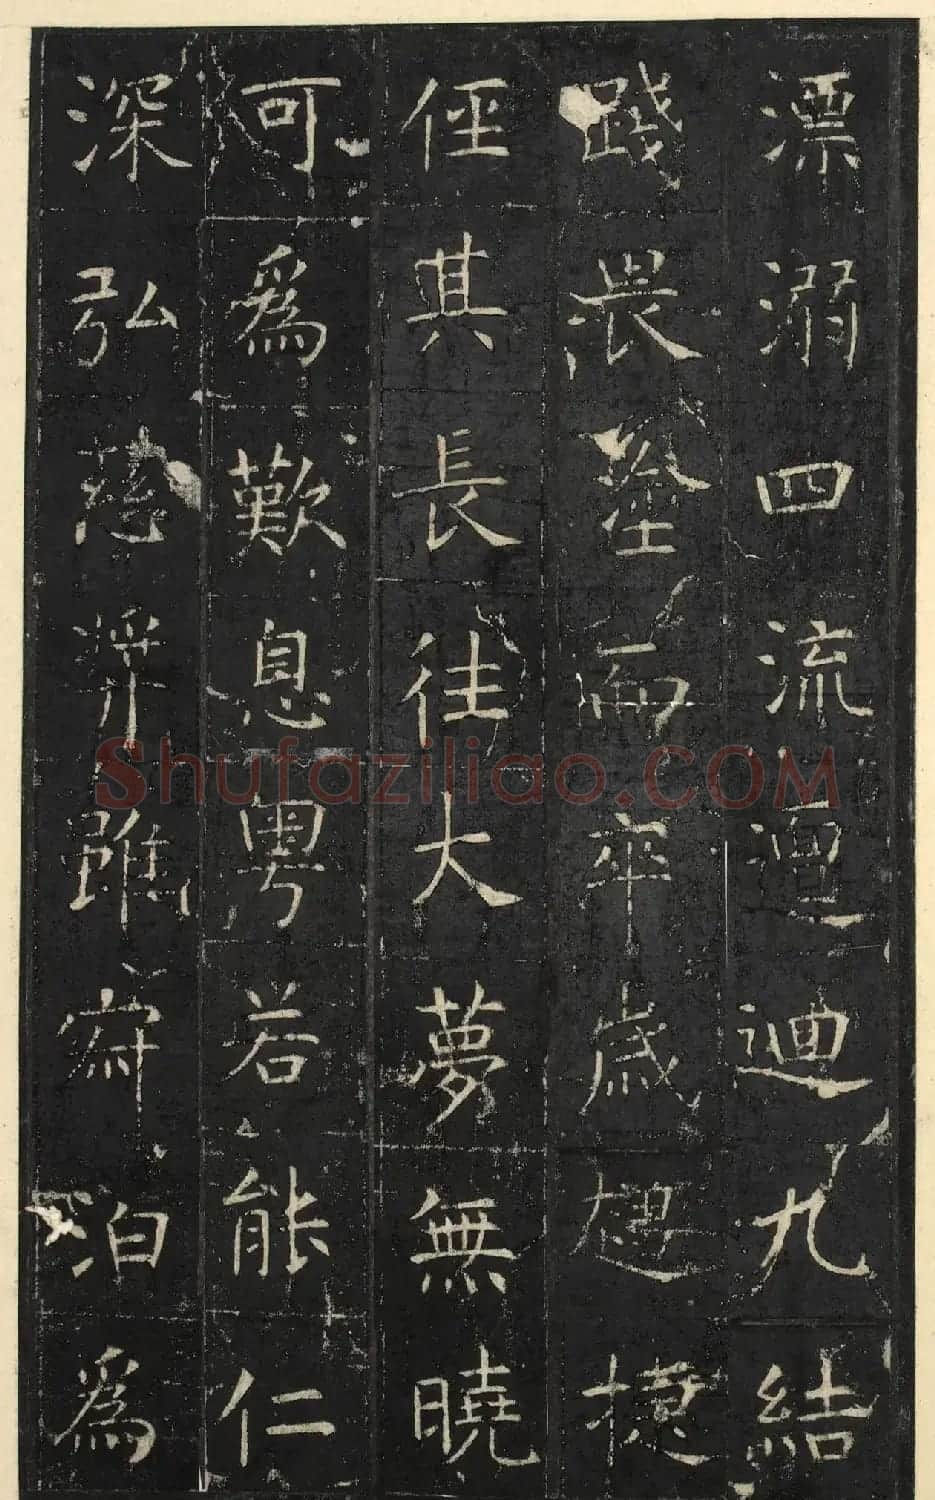 漂溺四流邅迴九結
踐畏塗而卒歲趨捷
俓其長往大夢無曉
可為歎息粵若能仁
深弘慈筭雖寂泊為
Shufaziliao.COM